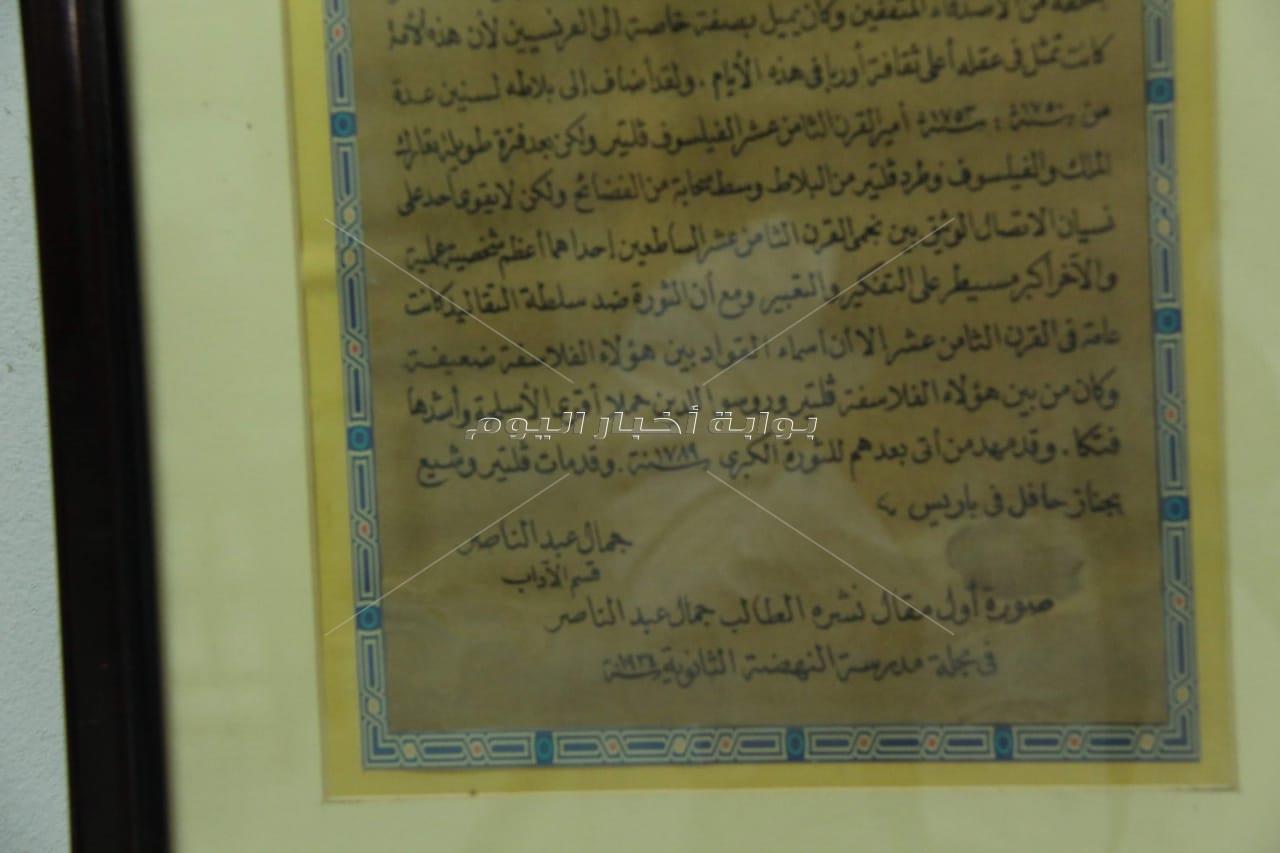 بحلقة من الأصدقاء المثقفين وكان يميل بصفة خاصة إلى الفرنسيين لأن هذه الأمة
كانت تمثل فى عقله أعلى ثقافة أوربا فى هذه الأيام . ولقد أضاف إلى بلاطه لسنين عدة
من سنة ١٧٥٠ : سنة ١٧٥٣ أمير القرن الثامن عشر الفيلسوف ڤلتير ولكن بعد فترة طويلة تعارك
الملك والفيلسوف وطرد ڤلتير من البلاط وسط سحابة من الفضائح ولكن لا يقوى أحد على
نسيان الاتصال الوثيق بين نجمى القرن الثامن عشر الساطعين إحداهما أعظم شخصية عملية
والآخر أكبر مسيطر على التفكير والتعبير ومع أن الثورة ضد سلطة التقاليد كانت
عامة فى القرن الثامن عشر إلا أن أسماء القواد بين هؤلاء الفلاسفة ضعيفة
وكان من بين هؤلاء الفلاسفة ڤلتير وروسو الذين حملا أقوى الأسلحة وأشدها
فتكا . وقد مهد من أتى بعدهم للثورة الكبرى سنة ١٧٨٩ . وقد مات ڤلتير وشيع
بجناز حافل فى باريس
جمال عبد الناصر
قسم الآداب
صورة أول مقال نشره الطالب جمال عبد الناصر
فى مجلة مدرسة النهضة الثانوية سنة ١٩٣٤
بوابة أخبار اليوم